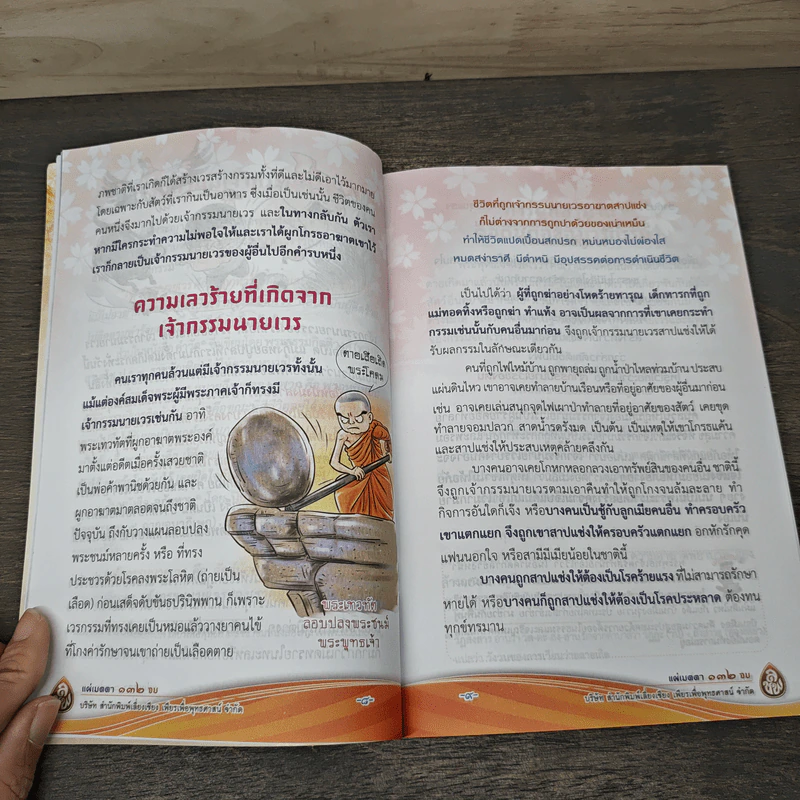 ภพชาติที่เราเกิดก็ได้สร้างเวรสร้างกรรมทั้งที่ดีและไม่ดีเอาไว้มากมาย
โดยเฉพาะกับสัตว์ที่เรากินเป็นอาหาร ซึ่งเมื่อเป็นเช่นนั้น ชีวิตของคน
คนหนึ่งจึงมากไปด้วยเจ้ากรรมนายเวร และในทางกลับกัน ตัวเรา
หากมีใครกระทำความไม่พอใจให้และเราได้ผูกโกรธอาฆาตเขาไว้
เราก็กลายเป็นเจ้ากรรมนายเวรของผู้อื่นไปอีกคำรบหนึ่ง
ความเลวร้ายที่เกิดจาก
เจ้ากรรมนายเวร
คนเราทุกคนล้วนแต่มีเจ้ากรรมนายเวรทั้งนั้น
แม้แต่องค์สมเด็จพระผู้มีพระภาคเจ้าก็ทรงมี
เจ้ากรรมนายเวรเช่นกัน อาทิ
พระเทวทัตที่ผูกอาฆาตพระองค์
มาตั้งแต่อดีตเมื่อครั้งเสวยชาติ
เป็นพ่อค้าพานิชด้วยกัน และ
ผูกอาฆาตมาตลอดจนถึงชาติ
ปัจจุบัน ถึงกับวางแผนลอบปลง
พระชนม์หลายครั้ง หรือ ที่ทรง
ประชวรด้วยโรคลงพระโลหิต (ถ่ายเป็น
เลือด) ก่อนเสด็จดับขันธปรินิพพาน ก็เพราะ
เวรกรรมที่ทรงเคยเป็นหมอแล้ววางยาคนไข้
ที่โกงค่ารักษาจนเขาถ่ายเป็นเลือดตาย
ตายเสียเถิด
พระโคดม
พระเทวทัต
ลอบปลงพระชนม์
พระพุทธเจ้า
แผ่เมตตา ๑๓๒ จบ
บริษัท สำนักพิมพ์เลี่ยงเชียง เพียรเพื่อพุทธศาสน์ จำกัด
-๘-
ชีวิตที่ถูกเจ้ากรรมนายเวรอาฆาตสาปแช่ง
ก็ไม่ต่างจากการถูกปาด้วยของเน่าเหม็น
ทำให้ชีวิตแปดเปื้อนสกปรก หม่นหมองไม่ผ่องใส
หมดสง่าราศี มีตำหนิ มีอุปสรรคต่อการดำเนินชีวิต
เป็นไปได้ว่า ผู้ที่ถูกฆ่าอย่างโหดร้ายทารุณ เด็กทารกที่ถูก
แม่ทอดทิ้งหรือถูกฆ่า ทำแท้ง อาจเป็นผลจากการที่เขาเคยกระทำ
กรรมเช่นนั้นกับคนอื่นมาก่อน จึงถูกเจ้ากรรมนายเวรสาปแช่งให้ได้
รับผลกรรมในลักษณะเดียวกัน
คนที่ถูกไฟไหม้บ้าน ถูกพายุถล่ม ถูกน้ำป่าไหลท่วมบ้าน ประสบ
แผ่นดินไหว เขาอาจเคยทำลายบ้านเรือนหรือที่อยู่อาศัยของผู้อื่นมาก่อน
เช่น อาจเคยเล่นสนุกจุดไฟเผาป่าทำลายที่อยู่อาศัยของสัตว์ เคยขุด
ทำลายจอมปลวก สาดน้ำรดรังมด เป็นต้น เป็นเหตุให้เขาโกรธแค้น
และสาปแช่งให้ประสบเหตุคล้ายคลึงกัน
บางคนอาจเคยโกหกหลอกลวงเอาทรัพย์สินของคนอื่น ชาตินี้
จึงถูกเจ้ากรรมนายเวรตามเอาคืนทำให้ถูกโกงจนล้มละลาย ทำ
กิจการอันใดก็เจ๊ง หรือบางคนเป็นชู้กับลูกเมียคนอื่น ทำครอบครัว
เขาแตกแยก จึงถูกเขาสาปแช่งให้ครอบครัวแตกแยก อกหักรักคุด
แฟนนอกใจ หรือสามีมีเมียน้อยในชาตินี้
บางคนถูกสาปแช่งให้ต้องเป็นโรคร้ายแรง ที่ไม่สามารถรักษา
หายได้ หรือบางคนก็ถูกสาปแช่งให้ต้องเป็นโรคประหลาด ต้องทน
ทุกข์ทรมาน
-๙-
แผ่เมตตา ๑๓๒ จบ
บริษัท สำนักพิมพ์เลี่ยงเชียง เพียรเพื่อพุทธศาสน์ จำกัด